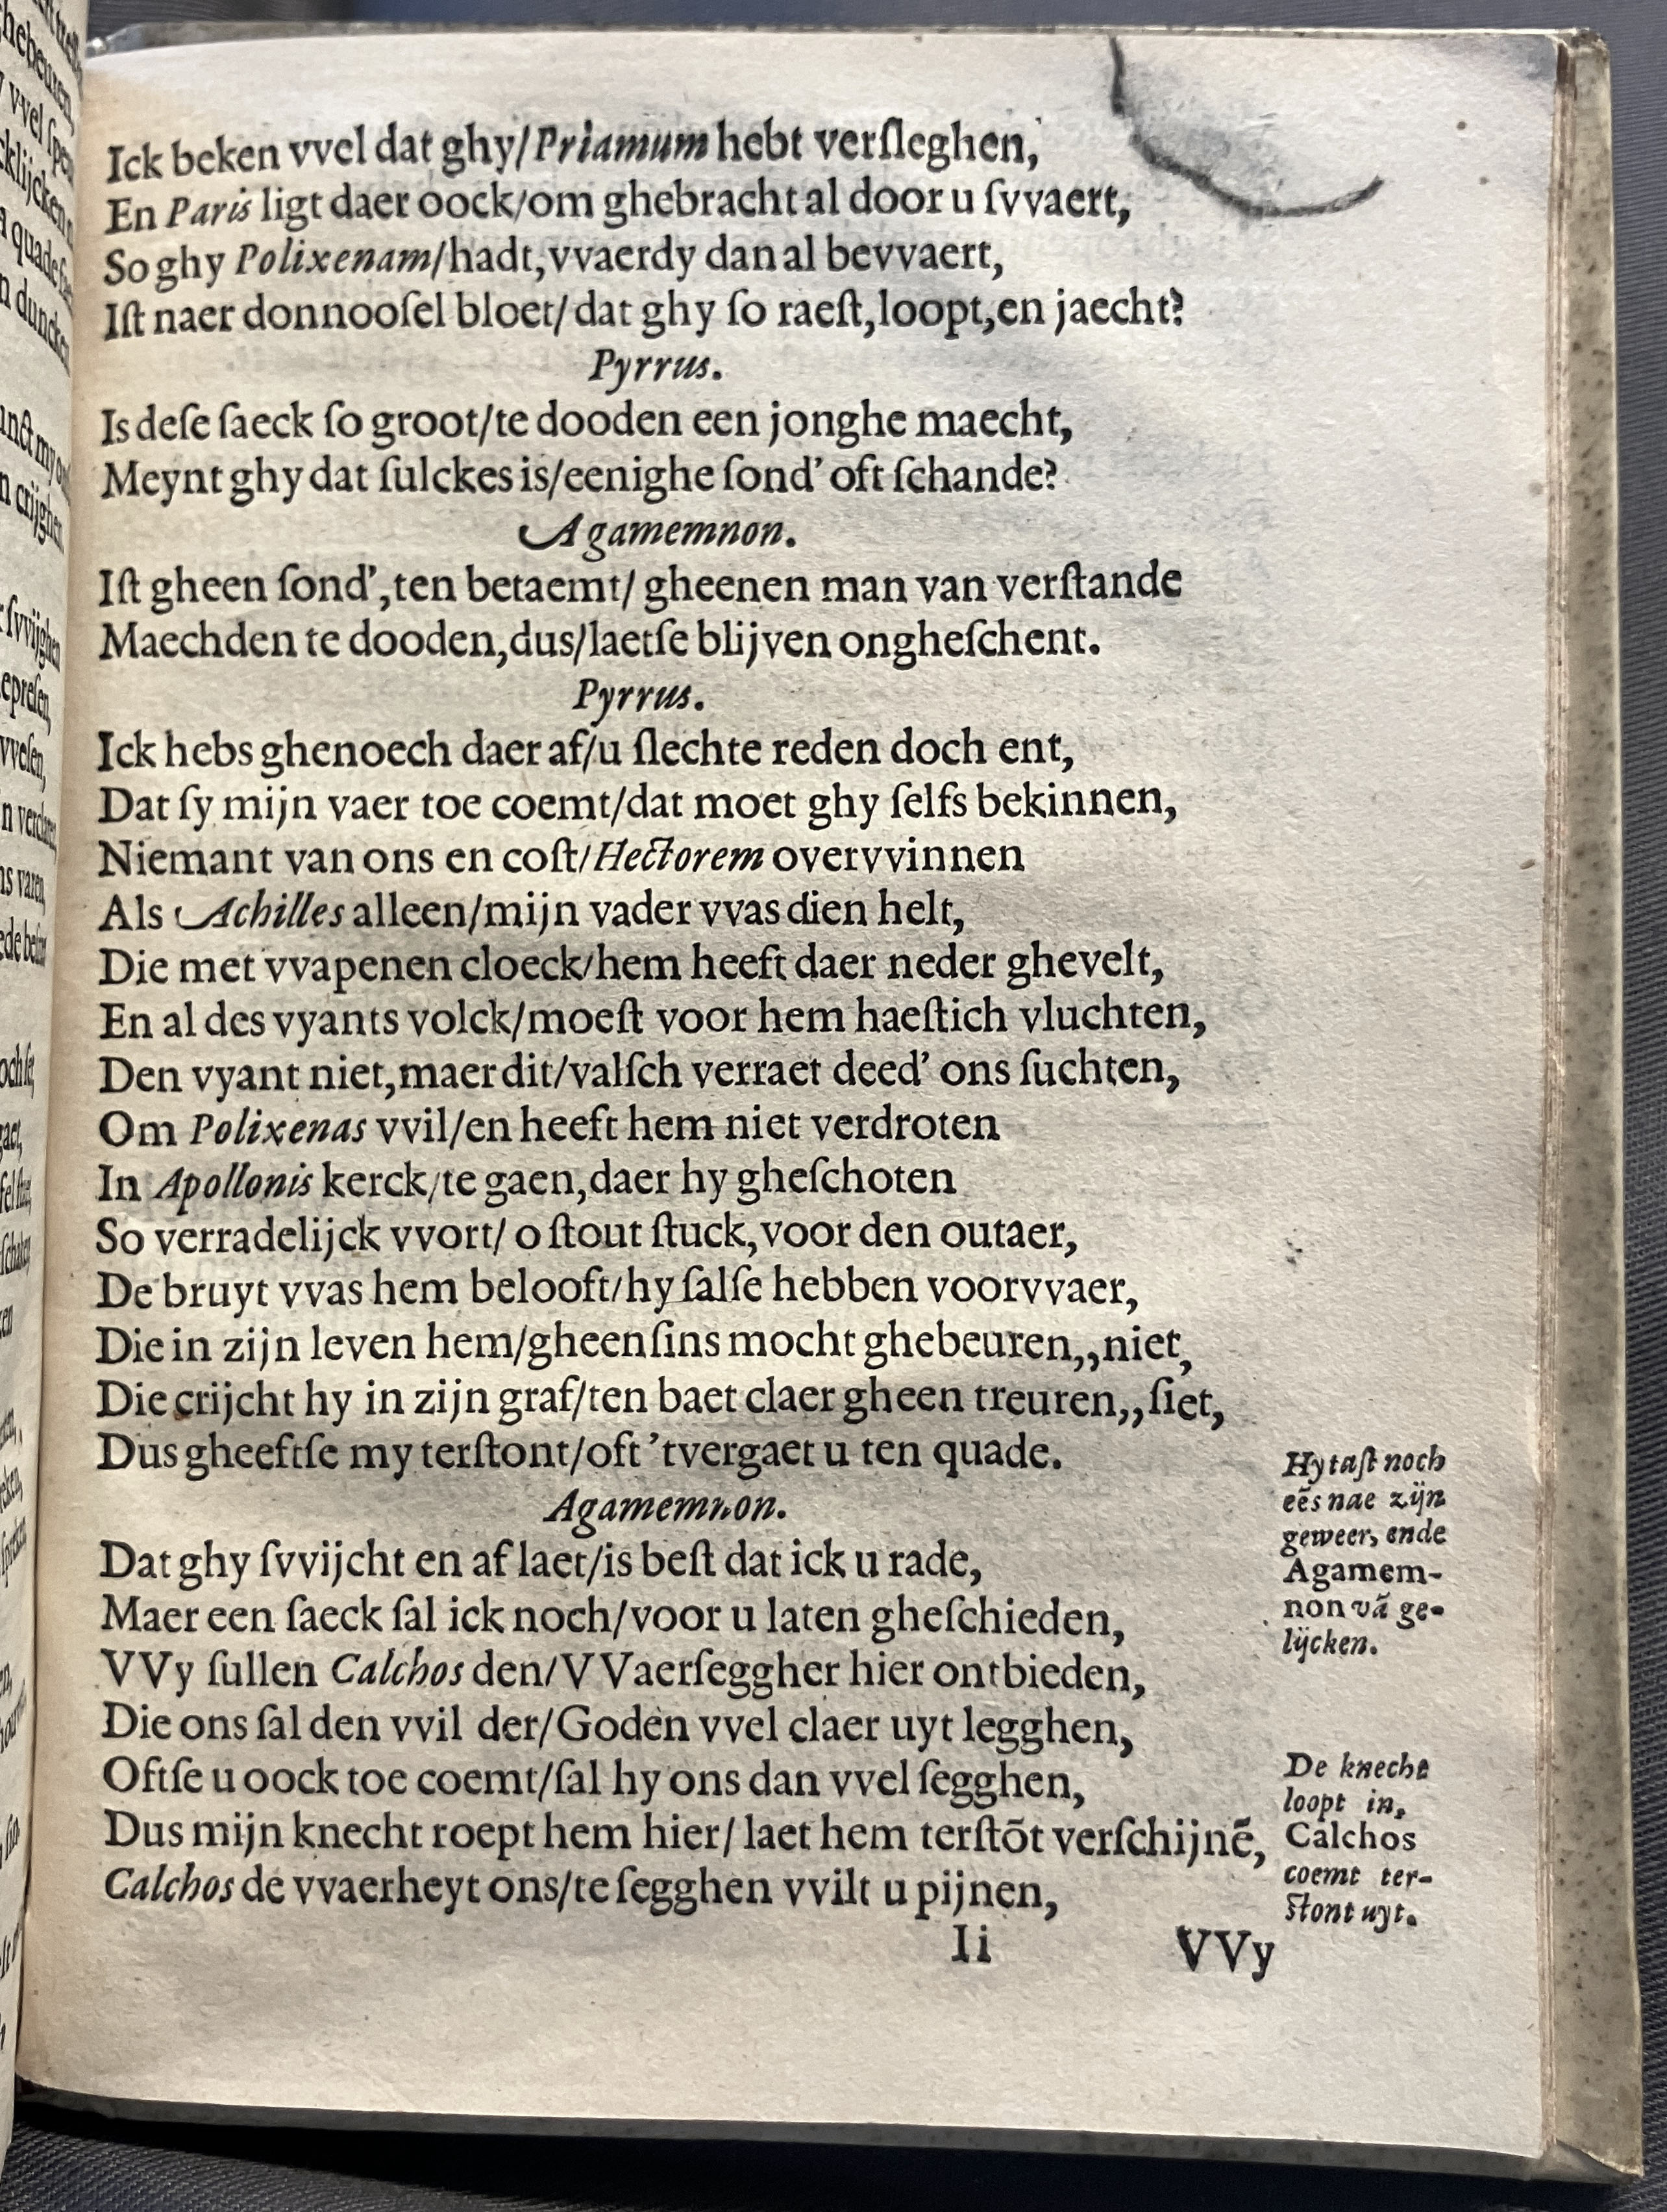 Ick beken vvel dat ghy/Priamum hebt verſleghen,
En Paris ligt daer oock/om ghebracht al door u ſvvaert,
So ghy Polixenam/hadt,vvaerdy dan al bevvaert,
Iſt naer donnooſel bloet/dat ghy ſo raeſt,loopt,en jaecht?
Pyrrus.
Is deſe ſaeck ſo groot/te dooden een jonghe maecht,
Meynt ghy dat ſulckes is/eenighe ſond’ oft ſchande?
Agamemnon.
Iſt gheen ſond’,ten betaemt/ gheenen man van verſtande
Maechden te dooden,dus/laetſe blijven ongheſchent.
Pyrrus.
Ick hebs ghenoech daer af/u ſlechte reden doch ent,
Dat ſy mijn vaer toe coemt/dat moet ghy ſelfs bekinnen,
Niemant van ons en coſt/Hectorem overvvinnen
Als Achilles alleen/mijn vader vvas dien helt,
Die met vvapenen cloeck/hem heeft daer neder ghevelt,
En al des vyants volck/moeſt voor hem haeſtich vluchten,
Den vyant niet,maer dit/valſch verraet deed’ ons ſuchten,
Om Polixenas vvil/en heeft hem niet verdroten
In Apollonis kerck/te gaen,daer hy gheſchoten
So verradelijck vvort/ o ſtout ſtuck,voor den outaer,
De bruyt vvas hem belooft/hy ſalſe hebben voorvvaer,
Die in zijn leven hem/gheenſins mocht ghebeuren,,niet,
Die crijcht hy in zijn graf/ten baet claer gheen treuren,,ſiet,
Dus gheeftſe my terſtont/oft ’tvergaet u ten quade.
Hy taſt noch
eẽs nae zijn
geweer, ende
Agamem-
non vã ge-
lijcken.
Agamemnon.
Dat ghy ſvvijcht en af laet/is beſt dat ick u rade,
Maer een ſaeck ſal ick noch/voor u laten gheſchieden,
VVy ſullen Calchos den/VVaerſeggher hier ontbieden,
Die ons ſal den vvil der/Goden vvel claer uyt legghen,
Oftſe u oock toe coemt/ſal hy ons dan vvel ſegghen,
Dus mijn knecht roept hem hier/ laet hem terſtõt verſchijnẽ,
Calchos de vvaerheyt ons/te ſegghen vvilt u pijnen,
De knecht
loopt in,
Calchos
coemt ter-
ſtont uyt.
Ii VVy